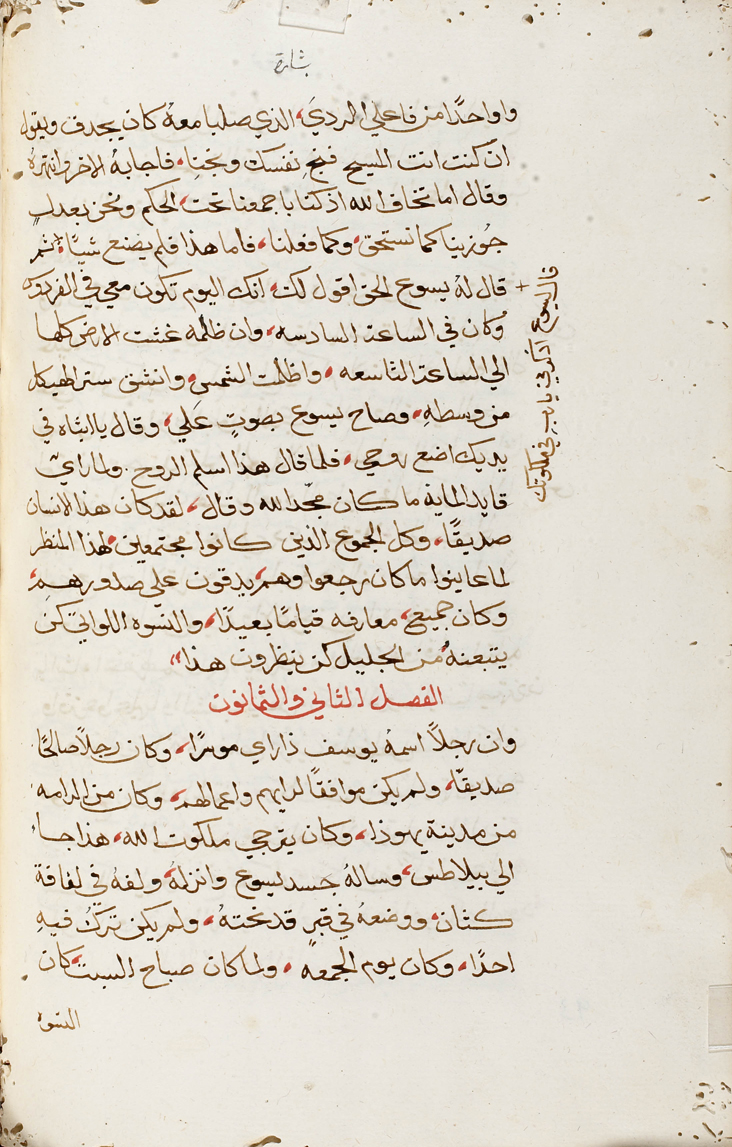 بشارة
واواحدًا من فاعلي الردي، الذي صلبا معهُ كان يجدف ويقول
ان كنت انت المسيح فنجِ نفسك ونجنا، فاجابهُ الاخر وانتهرهُ
وقال اما تخاف الله اذ كنا باجمعنا تحت الحكم ونحن بعدل
جوزينا كما نستحق، وكما فعلنا، فاما هذا فلم يصنع شيًا، ثم
قال لهُ يسوع الحق اقول لك، انك اليوم تكون معي في الفردوس
وكان في الساعة السادسه، وان ظلمه غشت الارض كلها
الي الساعة التاسعه، واظلمت الشمس، وانشق ستر الهيكل
من وسطهِ، وصاح يسوع بصوتٍ عَلي، وقال يا ابتاه في
يديك اضع روحي، فلما قال هذا اسلم الروح. ولما راي
قايد الماية ما كان مجّد الله وقال، لقد كان هذا الانسان
صديقًا، وكل الجموع الذين كانوا مجتمعين، لهذا المنظر
لما عاينوا ما كان رجعوا وهم، يدقون علي صدورهم،
وكان جميع، معارفه قيامًا بعيدًا، والنسوه اللواتي كن
يتبعنهُ من الجليل كن ينظرون هذا،
الفصل الثاني والثمانون
وان رجلاً اسمهُ يوسف ذا راي موسرًا، وكان رجلاً صالحًا
صديقًا، ولم يكن موافقًا لرايهم واعمالهم، وكان من الرامه
من مدينة يهوذا، وكان يترجي ملكوت الله، هذا جاء
الي بيلاطس، وسالهُ جسد يسوع وانزلهُ، ولفهُ في لفافة
كتان، ووضعهُ في قبرٍ قد نحتهُ، ولم يكن تركَ فيهِ
احدًا، وكان يوم الجمعه، ولما كان صباح السبت، كان
النسوه
+ قال ليسوع اذكرني يا رب في ملكوتك